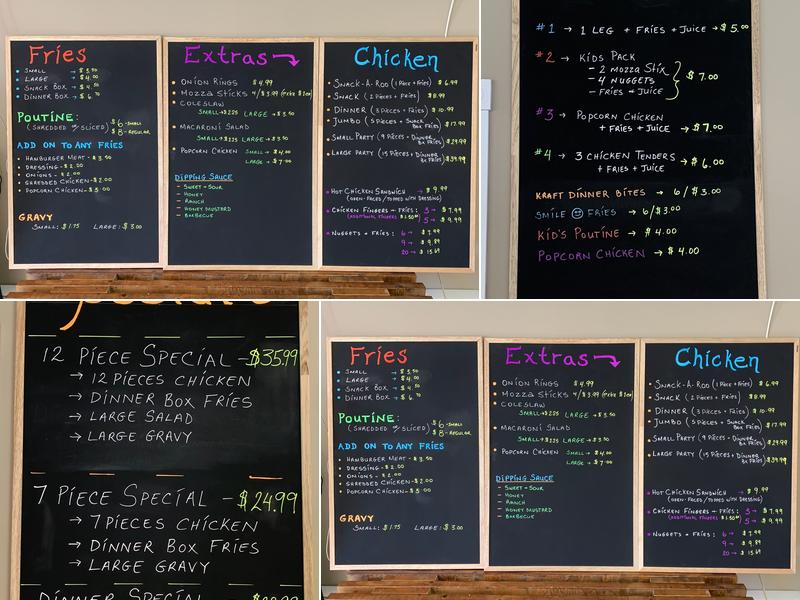 Fries
SMALL → $3.50
LARGE → $4.00
SNACK BOX → $4.50
DINNER BOX → $6.70
POUTINE:
(SHREDDED OR SLICED) $6-SMALL
$8-REGULAR
ADD ON TO ANY FRIES
HAMBURGER MEAT - $3.50
DRESSING - $2.00
ONIONS - $2.00
SHREDDED CHICKEN - $2.00
POPCORN CHICKEN - $3.00
GRAVY
SMALL: $1.75 LARGE: $3.00
Extras
ONION RINGS $4.99
MOZZA STICKS 4/$3.99
COLESLAW
SMALL → $2.25 LARGE → $3.50
MACARONI SALAD
SMALL → $2.25 LARGE → $3.50
POPCORN CHICKEN SMALL → $4.00
LARGE → $7.00
DIPPING SAUCE
- SWEET + SOUR
- HONEY
- RANCH
- HONEY MUSTARD
- BARBECUE
Chicken
SNACK-A-ROO (1 PIECE + FRIES) $6.99
SNACK (2 PIECES + FRIES) $8.99
DINNER (3 PIECES + FRIES) $10.99
JUMBO (5 PIECES + SNACK BOX FRIES) $17.99
SMALL PARTY (9 PIECES + DINNER BX FRIES) $29.99
LARGE PARTY (15 PIECES + DINNER BX FRIES) $39.99
HOT CHICKEN SANDWICH → $9.99
(OPEN-FACED/TOPPED WITH DRESSING)
CHICKEN FINGERS + FRIES: 3 → $7.99
(ADDITIONAL FINGERS $1.50) 5 → $9.99
NUGGETS + FRIES: 6 → $7.99
9 → $9.89
20 → $15.69
#1 → 1 LEG + FRIES + JUICE → $5.00
#2 → KIDS PACK
- 2 MOZZA STIX
- 4 NUGGETS
- FRIES + JUICE
$7.00
#3 → POPCORN CHICKEN
+ FRIES + JUICE → $7.00
#4 → 3 CHICKEN TENDERS
+ FRIES + JUICE → $6.00
KRAFT DINNER BITES → 6/$3.00
SMILE FRIES → 6/$3.00
KID'S POUTINE → $4.00
POPCORN CHICKEN → $4.00
12 PIECE SPECIAL - $35.99
→ 12 PIECES CHICKEN
→ DINNER BOX FRIES
→ LARGE SALAD
→ LARGE GRAVY
7 PIECE SPECIAL - $24.99
→ 7 PIECES CHICKEN
→ DINNER BOX FRIES
→ LARGE GRAVY
DINNER SPECIAL
Fries
SMALL → $3.50
LARGE → $4.00
SNACK BOX → $4.50
DINNER BOX → $6.70
POUTINE:
(SHREDDED OR SLICED) $6-SMALL
$8-REGULAR
ADD ON TO ANY FRIES
HAMBURGER MEAT - $3.50
DRESSING - $2.00
ONIONS - $2.00
SHREDDED CHICKEN - $2.00
POPCORN CHICKEN - $3.00
GRAVY
SMALL: $1.75 LARGE: $3.00
Extras
ONION RINGS $4.99
MOZZA STICKS 4/$3.99
COLESLAW
SMALL → $2.25 LARGE → $3.50
MACARONI SALAD
SMALL → $2.25 LARGE → $3.50
POPCORN CHICKEN SMALL → $4.00
LARGE → $7.00
DIPPING SAUCE
- SWEET + SOUR
- HONEY
- RANCH
- HONEY MUSTARD
- BARBECUE
Chicken
SNACK-A-ROO (1 PIECE + FRIES) $6.99
SNACK (2 PIECES + FRIES) $8.99
DINNER (3 PIECES + FRIES) $10.99
JUMBO (5 PIECES + SNACK BOX FRIES) $17.99
SMALL PARTY (9 PIECES + DINNER BX FRIES) $29.99
LARGE PARTY (15 PIECES + DINNER BX FRIES) $39.99
HOT CHICKEN SANDWICH → $9.99
(OPEN-FACED/TOPPED WITH DRESSING)
CHICKEN FINGERS + FRIES: 3 → $7.99
(ADDITIONAL FINGERS $1.50) 5 → $9.99
NUGGETS + FRIES: 6 → $7.99
9 → $9.89
20 → $15.69